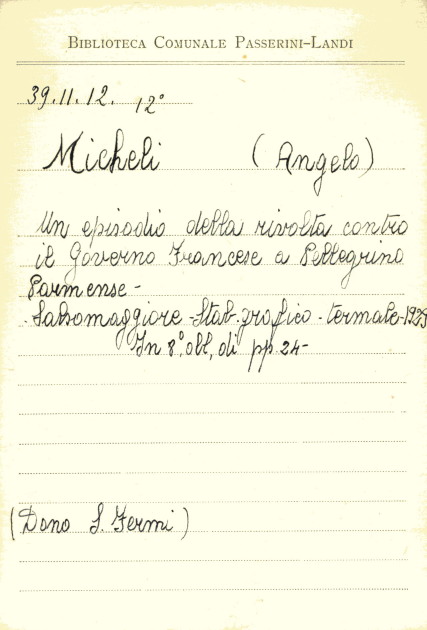 BIBLIOTECA COMUNALE PASSERINI-LANDI
39.11.12. 12°
Micheli (Angelo)
Un episodio della rivolta contro
il Governo Francese a Pellegrino
Parmense -
Salsomaggiore - Stab. grafico - termale - 1929
In 8°, obl, di pp. 24 -
(Dono S. Fermi)